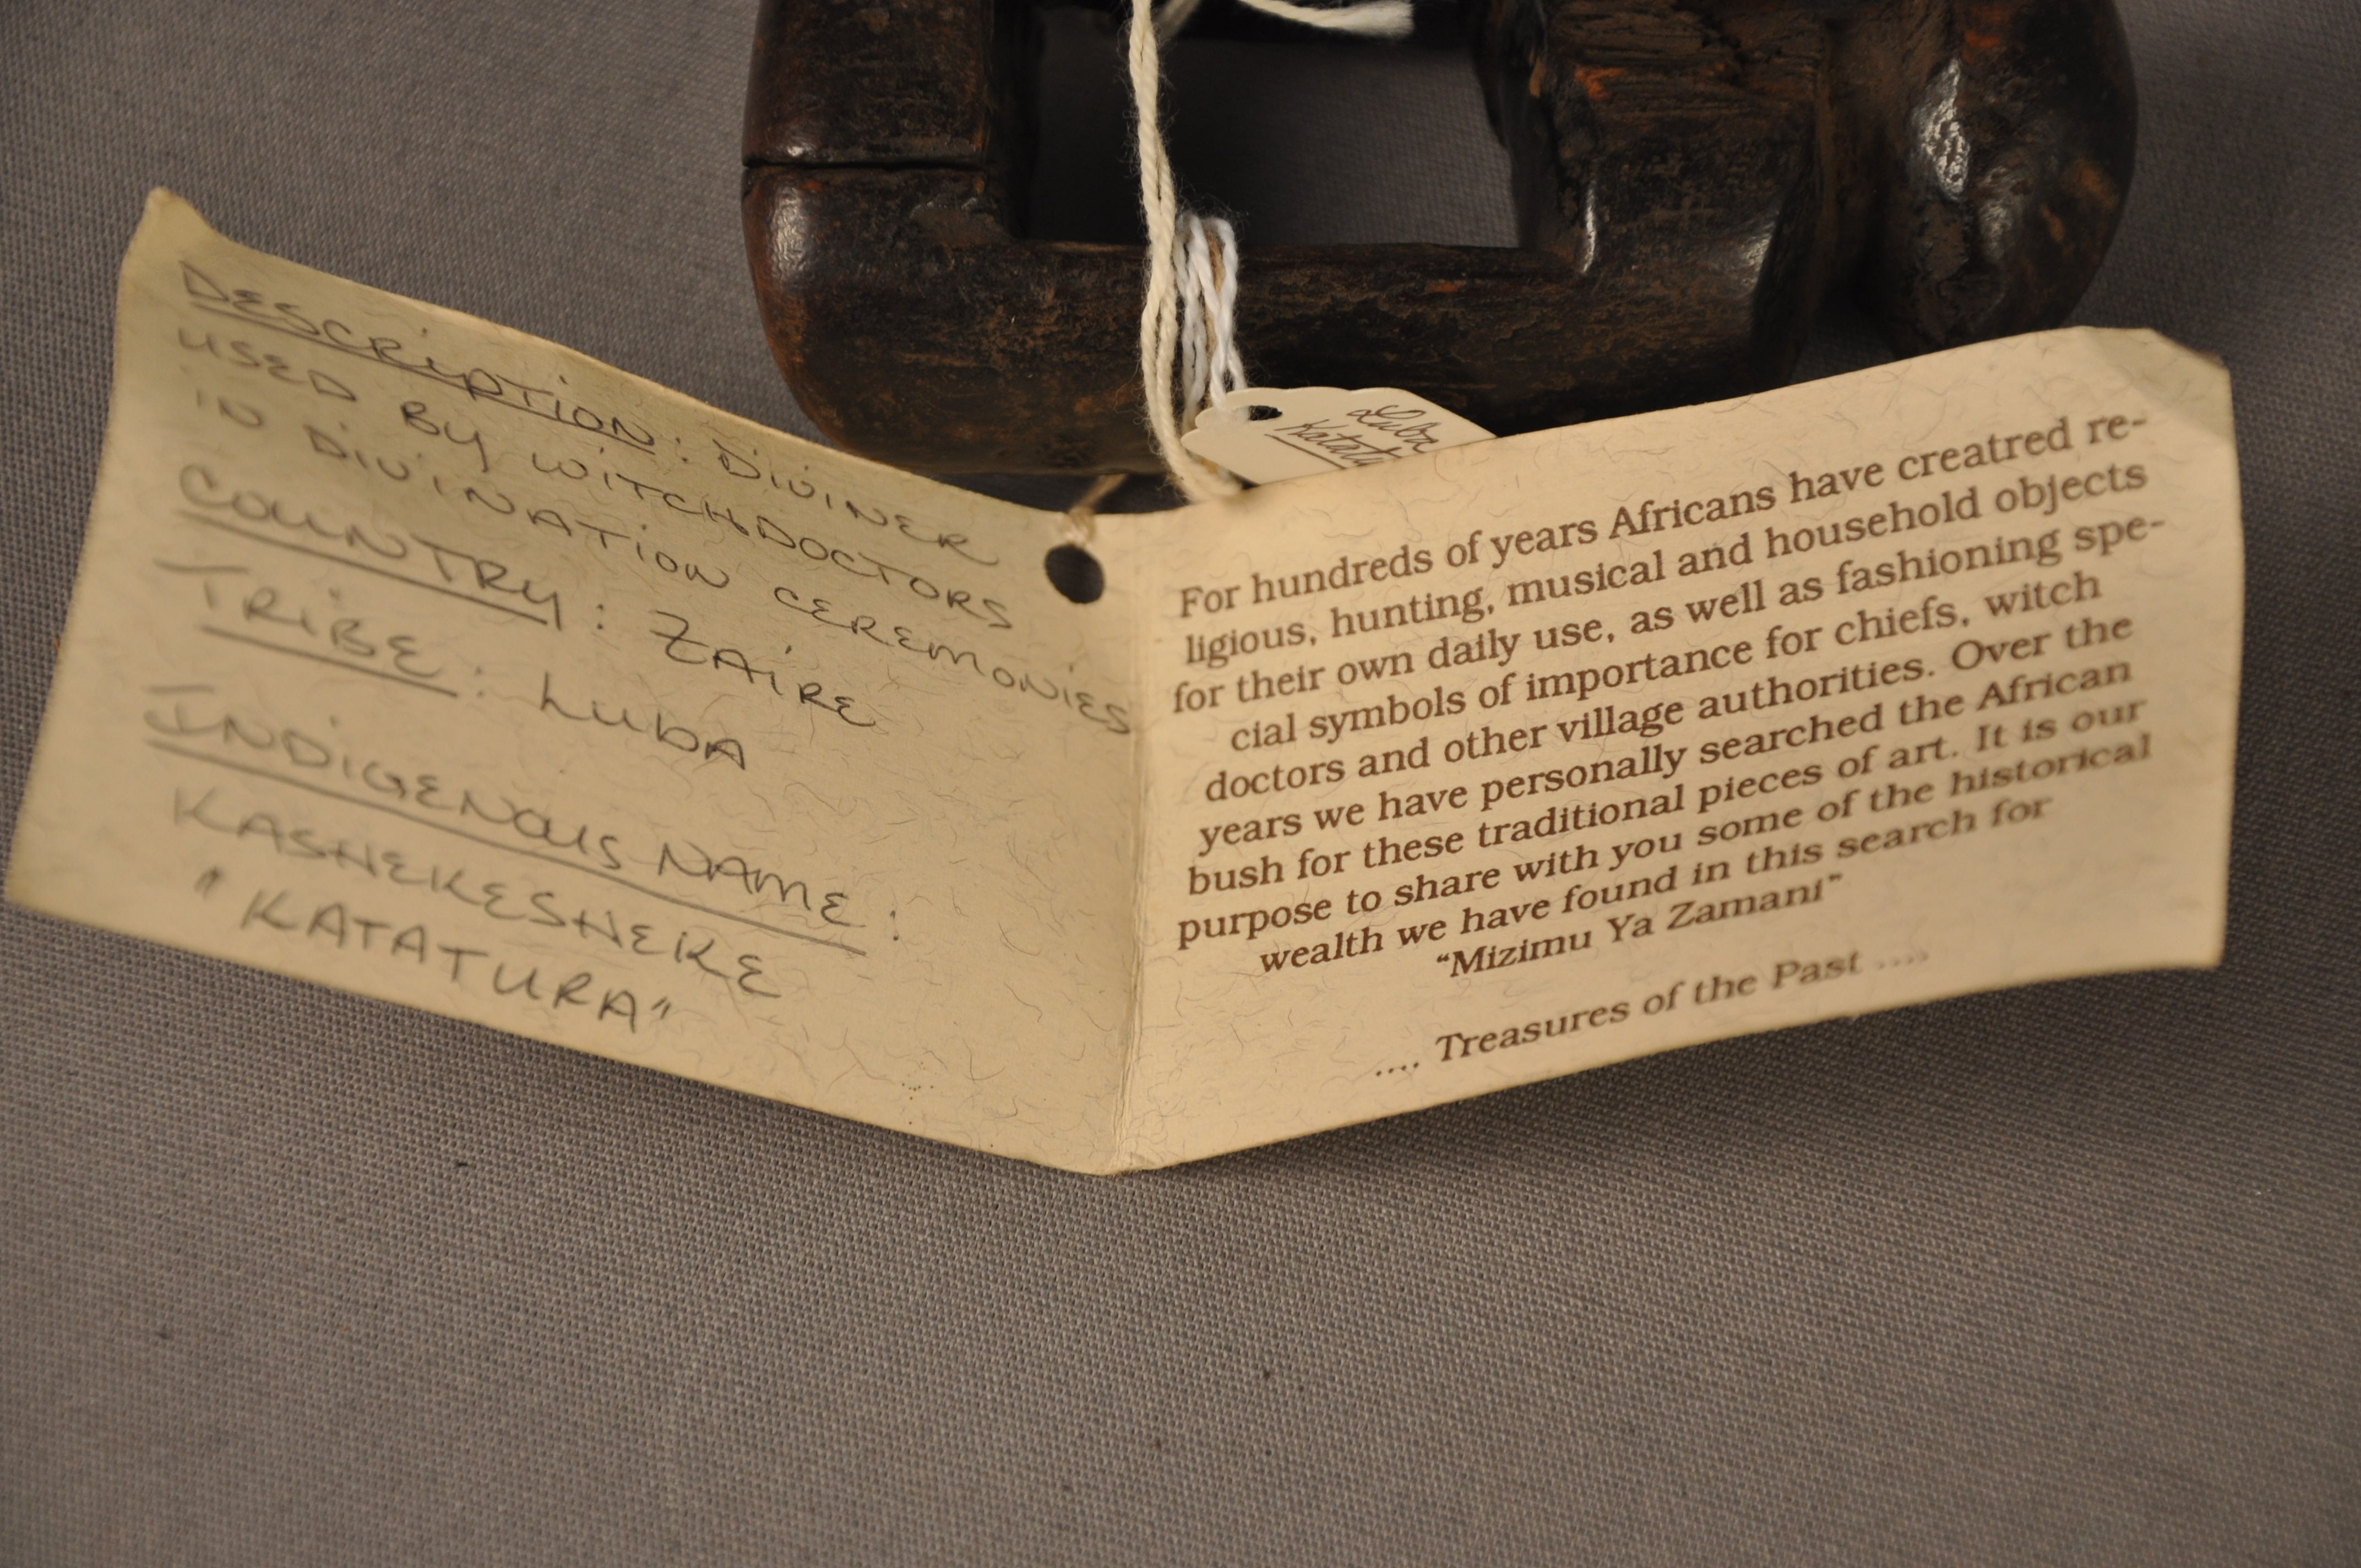 DESCRIPTION: DIVINER
USED BY WITCHDOCTORS
IN DIVINATION CEREMONIES
COUNTRY: ZAIRE
TRIBE: LUBA
INDIGENOUS NAME:
KASHEKESHEKE
"KATATURA"
Luba
For hundreds of years Africans have creatred re-
ligious, hunting, musical and household objects
for their own daily use, as well as fashioning spe-
cial symbols of importance for chiefs, witch
doctors and other village authorities. Over the
years we have personally searched the African
bush for these traditional pieces of art. It is our
purpose to share with you some of the historical
wealth we have found in this search for
"Mizimu Ya Zamani"
.... Treasures of the Past ....